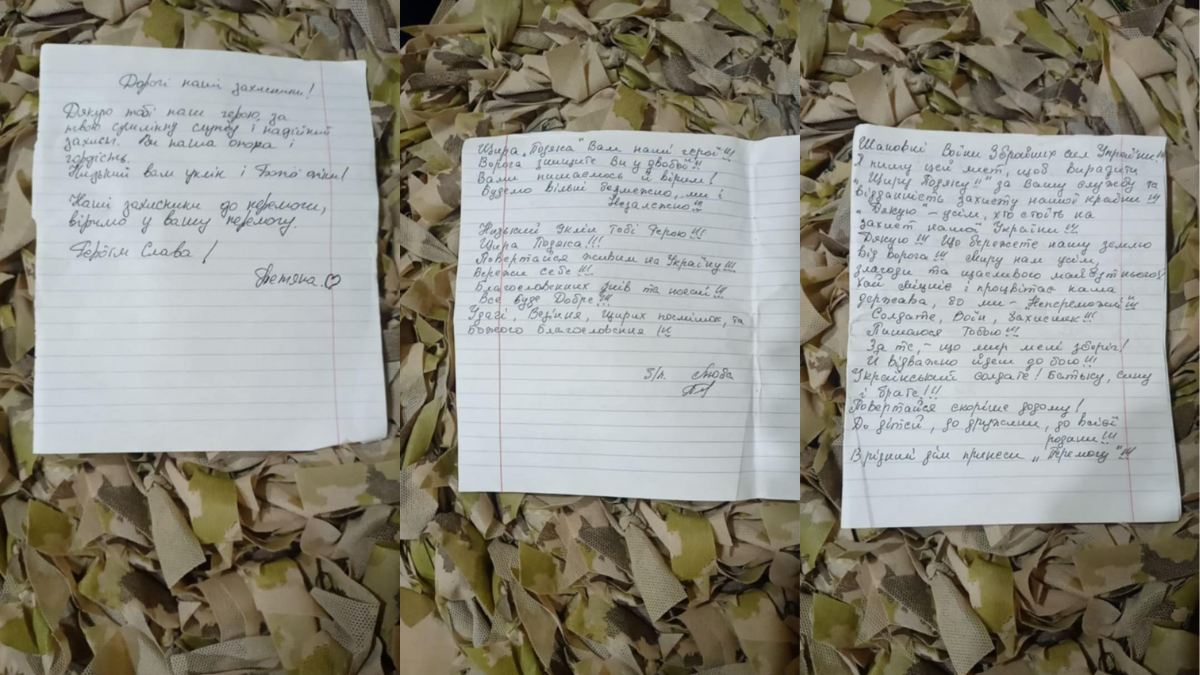 Дорогі наші захисники!
Дякую тобі наш герою за
твою сумлінну службу і надійний
захист. Ви наша опора і
гордість.
Низький вам уклін і Божої опіки!
Наші захисники до перемоги,
віримо у вашу перемогу.
Героїм Слава!
Тетяна.
Щира „Подяка" Вам наші герої!!!
Ворога знищите Ви у двобої!!!
Вами пишаємось й вірим!
Будемо вільні безмежно, ми і
Незалежно!!!
Низький Уклін Тобі Герою!!!
Щира Подяка!!!
Повертайся живим на Україну!!!
Бережи себе!!!
Благословенних днів та ночей!!!
Все буде Добре!!!
Удачі, Везіння, Щирих посмішок, та
Божого Благословення!!!
Люба
Шановні Воїни Збройних сил України!!!
Я пишу цей лист, щоб виразити
„Щиру Подяку!!" за Вашу службу та
відданність захисту нашої країни!!!
„Дякую – усім, хто стоїть на
захист нашої України!!!
Дякую!!! Що бережете нашу землю
від ворога!!! Миру нам усім,
злагоди та щасливого майбутнього!
Хай міцніє і процвітає наша
держава, бо ми – Непереможні!!!
Солдате, Воїн, Захисник!!!
Пишаюся Тобою!!!
За те, – що мир мені зберіг!
Й відважно йдеш до бою!!!
Український солдате! Батьку, сину
і брате!!!
Повертайся скоріше додому!
До дітей, до дружини, до всієї
родини!!!
В рідний дім принеси „Перемогу"!!!